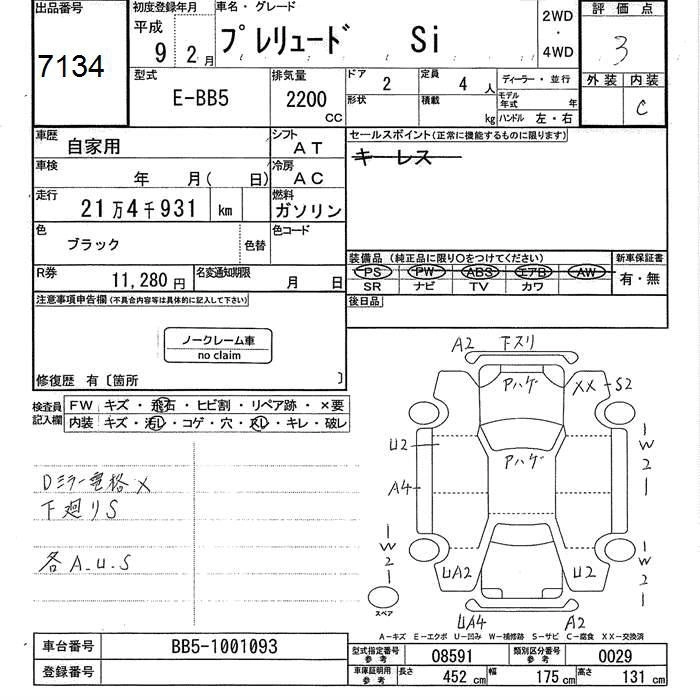 出品番号 初度登録年月 車名・グレード 評価点
7134 平成 9 2月 プレリュード Si 2WD・4WD 3
型式 排気量 ドア 定員 ディーラー・並行 外装 内装
E-BB5 2200 CC 2 4 人 モデル年式 年 C
形状 積載 kg ハンドル 左・右
車歴 自家用 シフト AT セールスポイント(正常に機能するものに限ります)
キーレス
車検 年 月( 日) 冷房 AC
走行 21万4千931 km 燃料 ガソリン
色 ブラック 色替 色コード
装備品 (純正品に限り○をつけてください) 新車保証書
PS PW ABS エアB AW 有・無
SR ナビ TV カワ
R券 11,280円 名変通知期限 月 日
後日品
注意事項申告欄(不具合内容等は具体的に記入して下さい)
ノークレーム車
no claim
修復歴 有〔箇所 〕
検査員記入欄 FW キズ・飛石・ヒビ割・リペア跡・×要
内装 キズ・汚レ・コゲ・穴・スレ・キレ・破レ
A2 下スリ
Aハゲ XX-S2
U2 Aハゲ 1 W2 1
A4
Dミラー電格×
下廻りS
各A.U.S
1 W2 1 UA2 U2 1 W2 1
スペア
UA4 A2
A-キズ E-エクボ U-凹み W-補修跡 S-サビ C-腐食 XX-交換済
車台番号 BB5-1001093
型式指定番号 参考 08591 類別区分番号 参考 0029
登録番号
車庫証明用 参考 長さ 452 cm 幅 175 cm 高さ 131 cm